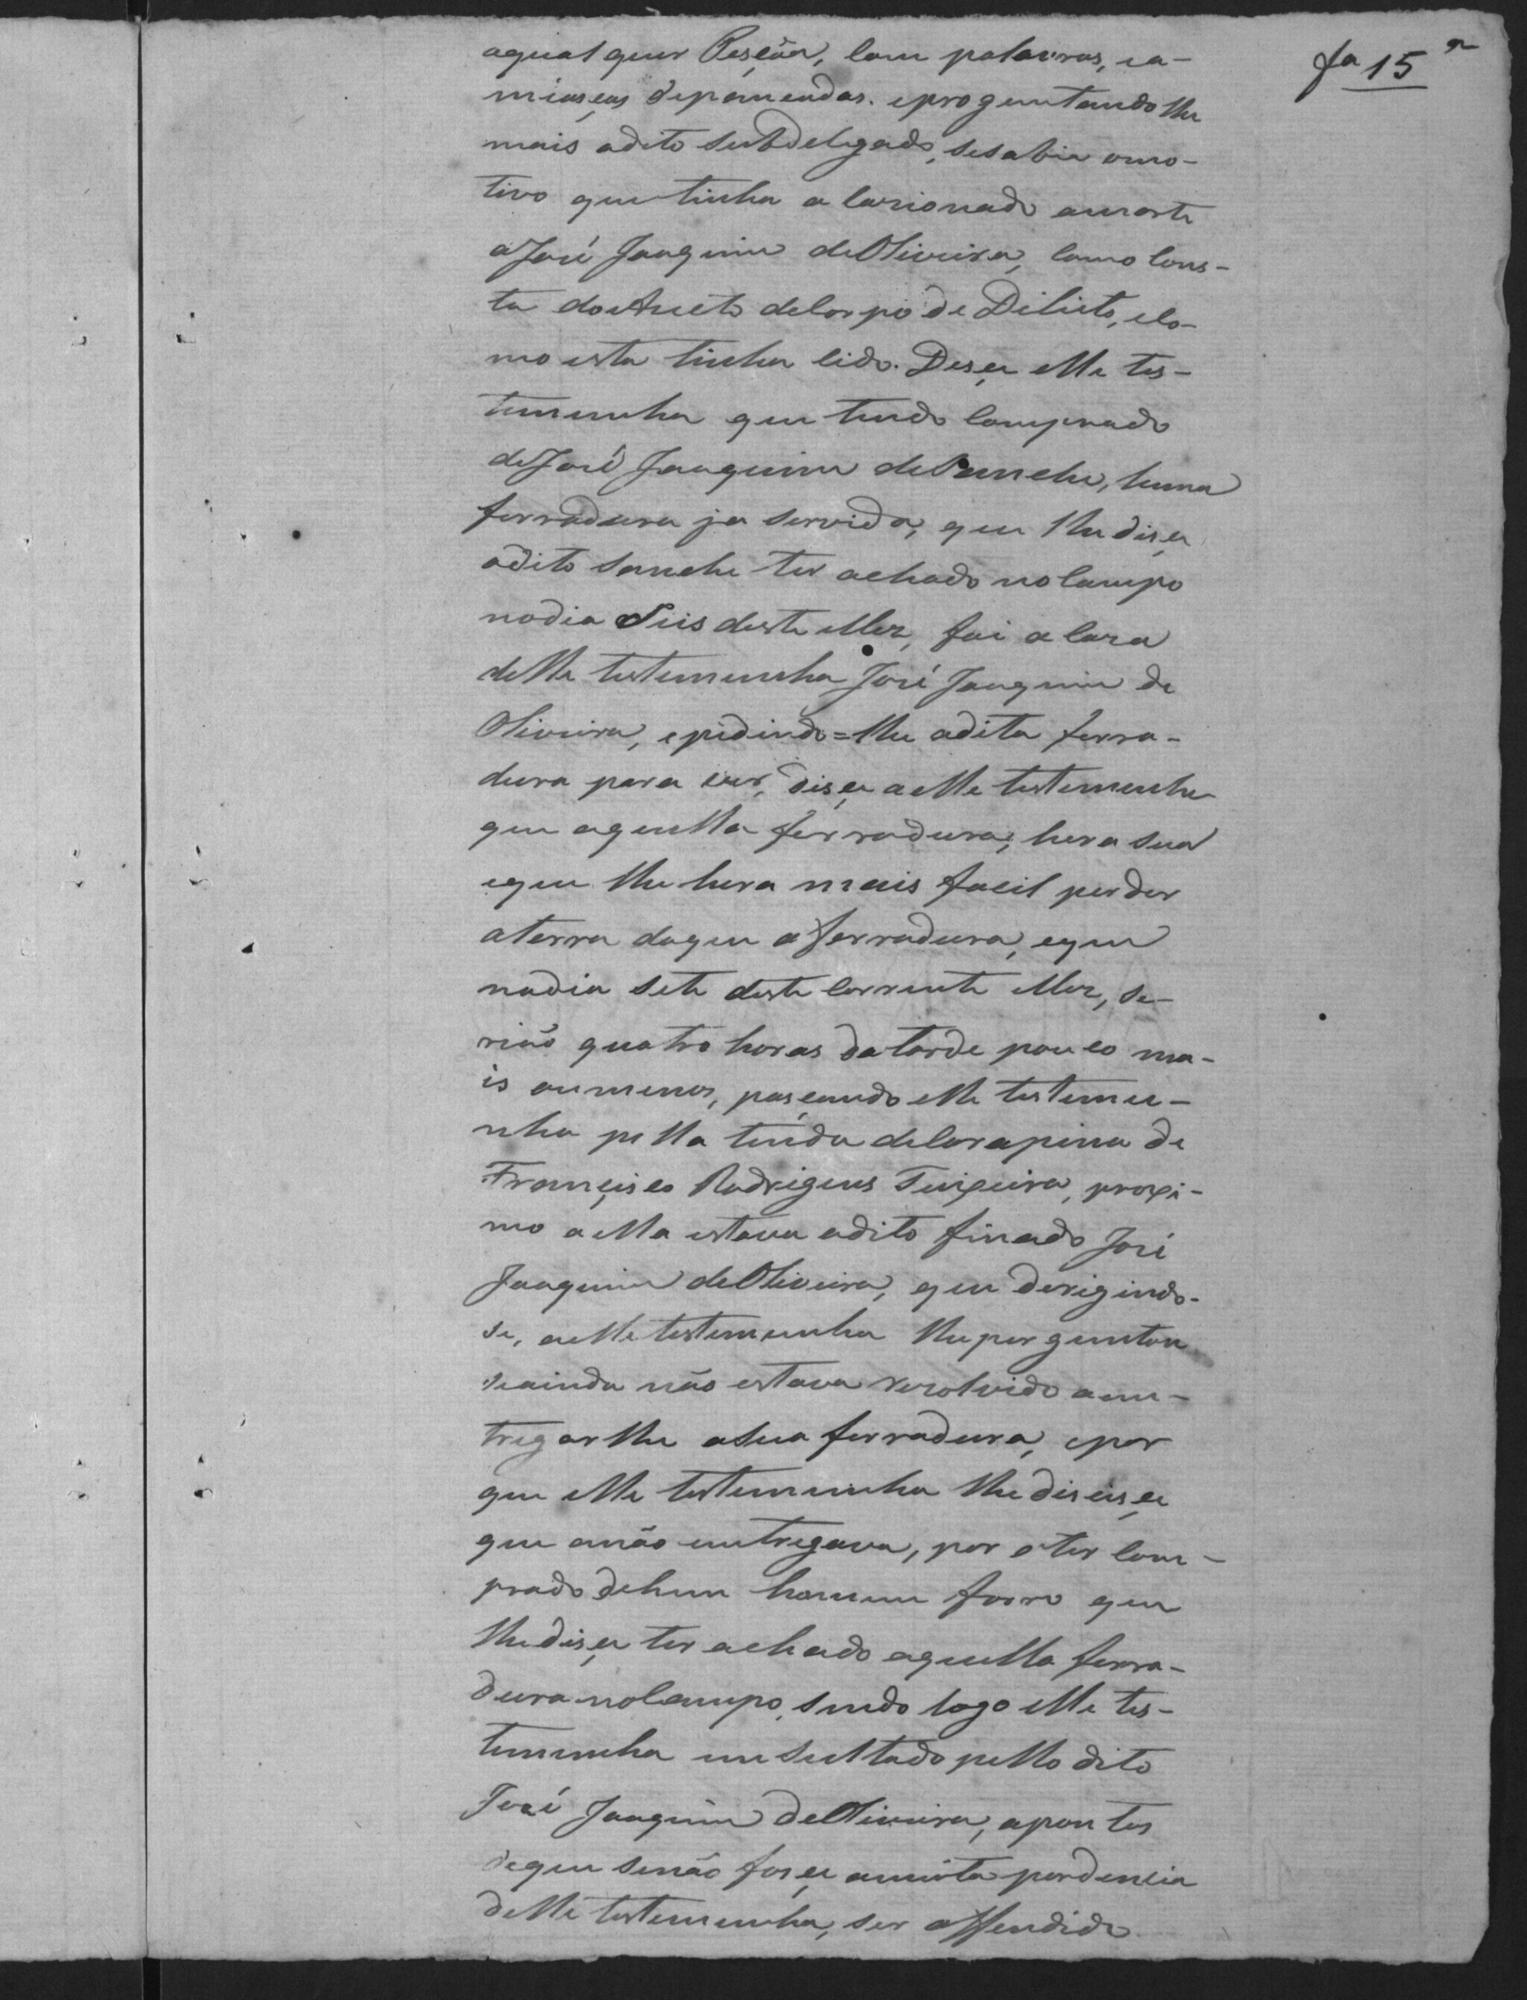 fa 15
aqualquer Pesçôa, com palavras, ea-
miaseas depancadas. eproguntandolhe
mais odito subdelegado, sesabia omo-
tivo que tinha a cazionado amorte
aJozé Joaquim deOliveira, como cons-
ta doAucto decorpo de Dilicto, eco-
mo esta tinha lido. Dise elle tes-
temunha que tendo comprado
deJozé Joaquim deSanche, huma
ferradura ja servida, que lhe dise
odito Sanche ter achado no Campo
nodia Seis deste Mez, foi a Caza
delle testemunha Jozé Joaquim de
Oliveira, epidindo=lhe adita ferra-
dura para ver, dise a elle testemunha
que aquella ferradura, hera sua
eque lhe hera mais facil perder
aterra doque a ferradura, eque
nodia sete deste corrente Mez, se-
rião quatro horas datarde pouco ma-
is oumenos, paseando elle testemu-
nha pella tenda deCarapina de
Francisco Rodrigues Teixeira, proxi-
mo a ella estava odito finado Jozé
Joaquim deOliveira, que derigindo-
se, aelle testemunha lheperguntou
seainda não estava rezolvido aen-
tregarlhe asua ferradura, epor
que elle testemunha lhe diseise
que anão entregava, por ater com-
prado dehum homem forro que
lhedise ter achado aquella ferra-
dura noCampo, sendo logo elle tes-
temunha ensultado pello dito
Jozé Joaquim deOliveira, apontos
deque senão fose amuita pordencia
delle testemunha, ser offendido